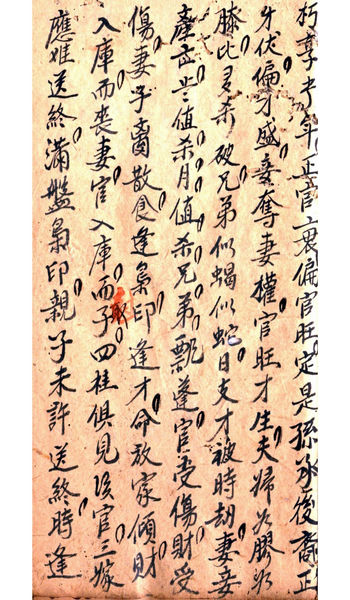 朽享乎年正官衰偏官旺定是孫承後裔正
才伏偏才盛妾奪妻權官旺才生夫婦如膠如
膝比多杀破兄弟似蝎似蛇日支才被時劫妻妾
產亡歲值杀月值杀兄弟飄蓬官受傷財受
傷妻子离散食逢梟印逢才命敗家傾財
入庫而喪妻官入庫而子四柱俱見殺官三嫁
應难送終滿盤梟印親子未許送終時逢